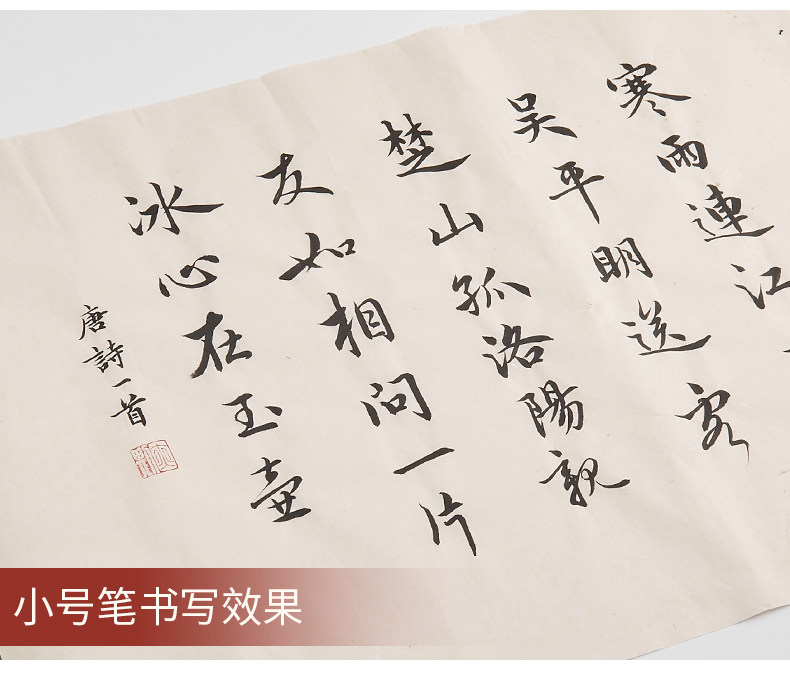 寒雨連江
吳平明送客
楚山孤洛陽親
友如相问一片
冰心在玉壺
唐詩一首
小号笔书写效果